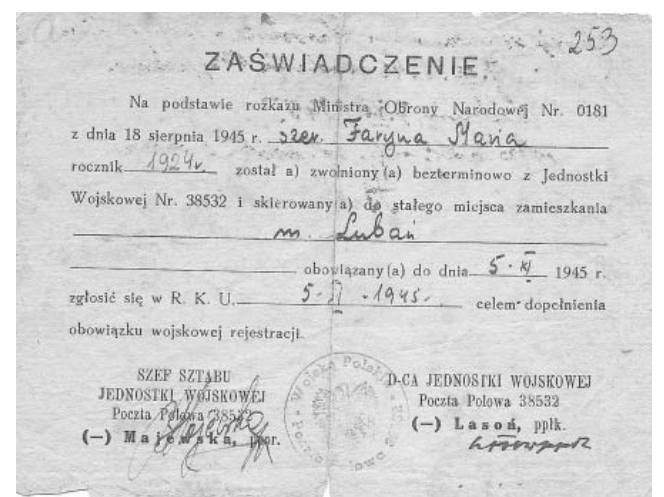 253
ZAŚWIADCZENIE
Na podstawie rozkazu Ministra Obrony Narodowej Nr. 0181
z dnia 18 sierpnia 1945 r. szer. Faryna Maria
rocznik 1924r. został a) zwolniony (a) bezterminowo z Jednostki
Wojskowej Nr. 38532 i skierowany(a) do stałego miejsca zamieszkania
m. Lubań
obowiązany(a) do dnia 5. XI 1945 r.
zgłosić się w R. K. U. 5-XI-1945- celem dopełnienia
obowiązku wojskowej rejestracji.
SZEF SZTABU
JEDNOSTKI WOJSKOWEJ
Poczta Polowa 38532
(—) Majewska, ppor.
D-CA JEDNOSTKI WOJSKOWEJ
Poczta Polowa 38532
(—) Lasoń, ppłk.
Wojsko Polskie